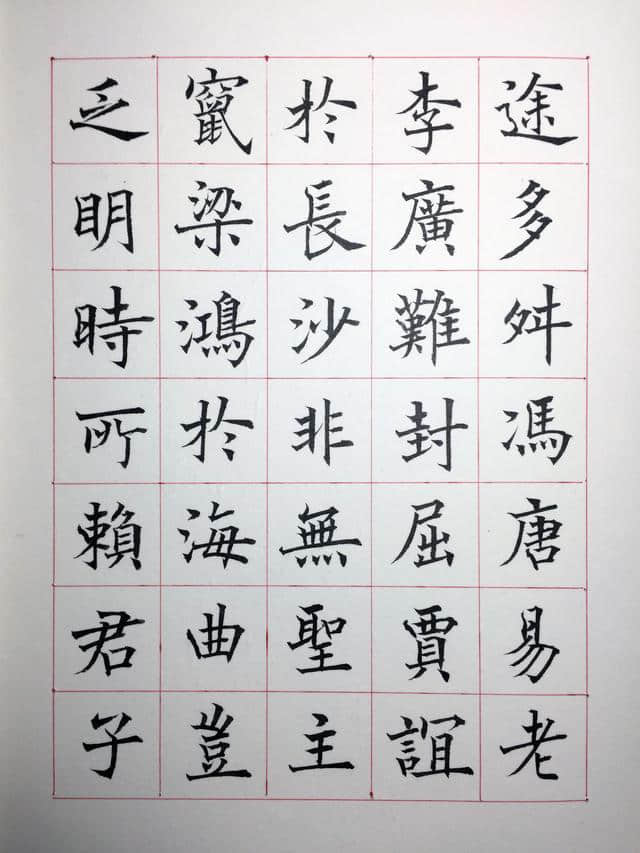 途多舛馮唐易老
李廣難封屈賈誼
於長沙非無聖主
竄梁鴻於海曲豈
乏明時所賴君子